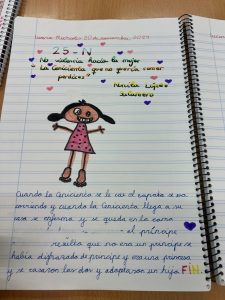 25-N
"No violencia hacia la mujer
"La Cenicienta que no quería comer
perdices"
Cuando la Cenicienta se le cae el zapato se va
corriendo y cuando la Cenicienta llega a su
casa se enferma y se queda en la cama
el príncipe
resulta que no era un principe se
había disfrazado de principe y era una princesa
y se casaron las dos y adoptaron un hijo FIN.